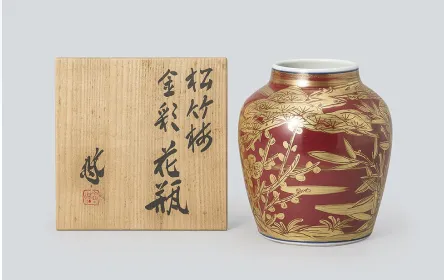 松竹梅
金彩花瓶